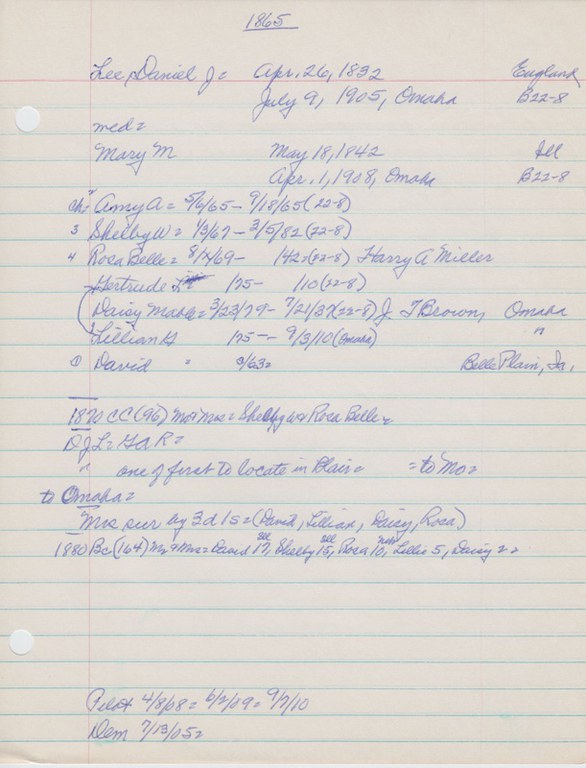 1865
Lee, Daniel J = Apr. 26, 1832 England
July 9, 1905, Omaha B22-8
med=
Mary M May 18, 1842 Ill
Apr. 1, 1908, Omaha B22-8
Amy A = 5/6/65 - 9/18/65 (22-8)
3 Shelby W = 1/3/67 - 3/5/82 (22-8)
4 Rosa Belle = 8/ /69 - 142 = (22-8) Harry A Miller
Gertrude L 175 - 1/10 (22-8)
Daisy Mable = 3/23/79 - 7/21/37 (22-8) J T Brown, Omaha
Lillian G 175 - - 9/3/10 (Omaha) "
① David " 9/63 = Belle Plain, Ia.
1870 CC (96) Mr & Mrs = Shelby W & Rosa Belle =
D J L = G A R =
" one of first to locate in Blair = = to Mo =
to Omaha =
Mrs sur by 3d 1s = (David, Lillian, Daisy, Rosa)
1880 BC (164) Mr & Mrs = David 17, Ill Shelby 15, Ill Rosa 10, Neb Lillie 5, Daisy 2 =
Pilot 4/8/08 = 6/2/09 = 9/7/10
Dem 7/13/05 =